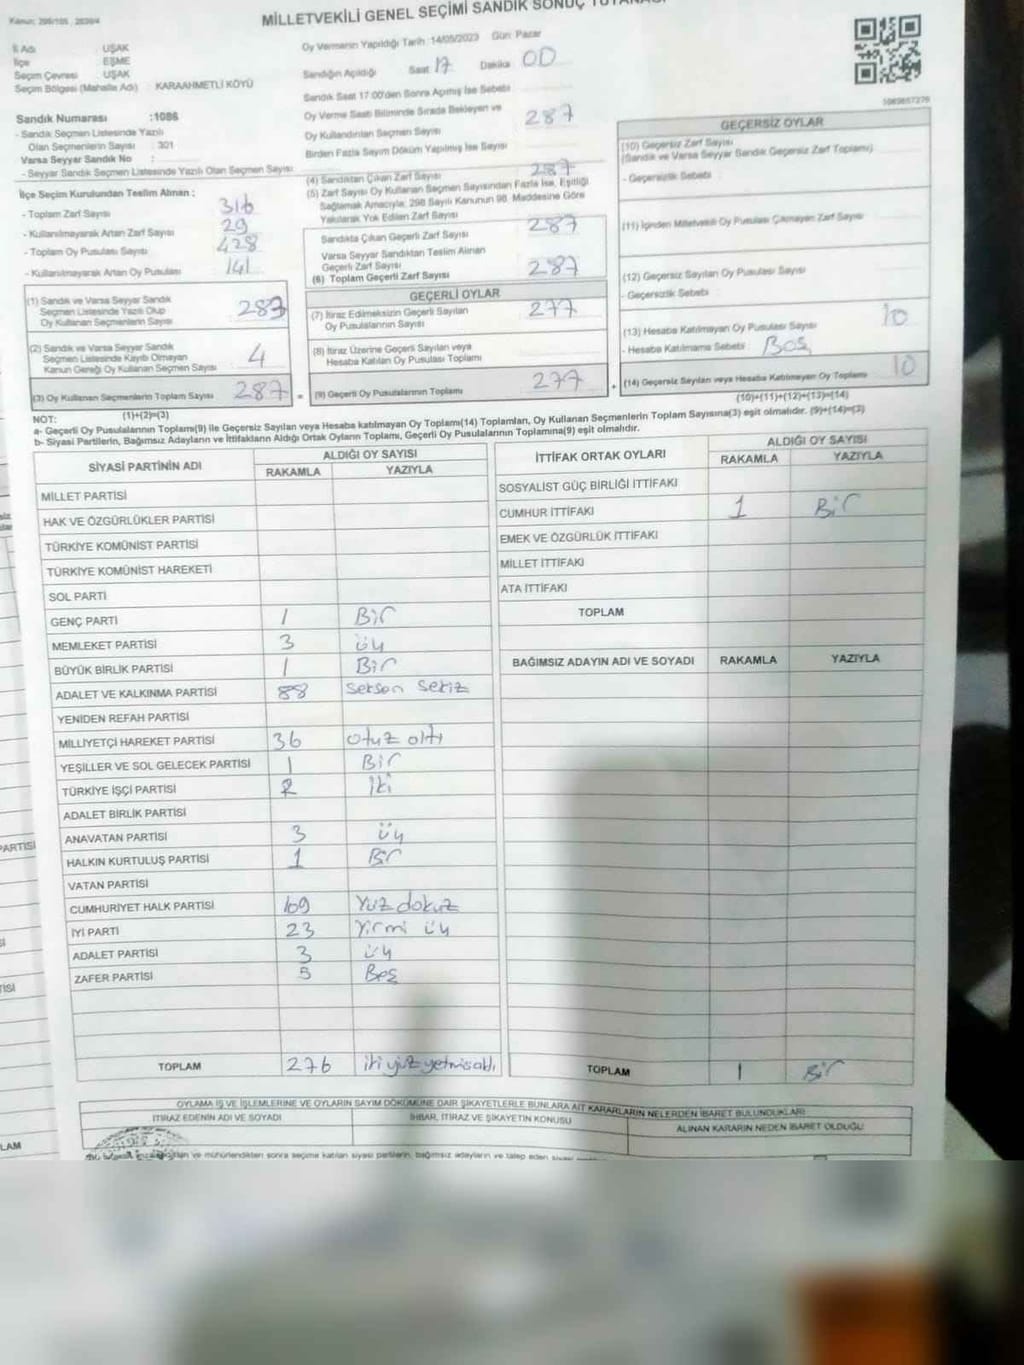 Kanun: 298/105 , 2839/4
MİLLETVEKİLİ GENEL SEÇİMİ SANDIK SONUÇ TUTANAĞI
İl Adı : UŞAK
İlçe : EŞME
Seçim Çevresi : UŞAK
Seçim Bölgesi (Mahalle Adı) : KARAAHMETLİ KÖYÜ
Oy Vermenin Yapıldığı Tarih :14/05/2023 Gün: Pazar
Sandığın Açıldığı Saat 17 Dakika 00
Sandık Saat 17:00'den Sonra Açmış İse Sebebi
Sandık Numarası :1086
- Sandık Seçmen Listesinde Yazılı
Olan Seçmenlerin Sayısı : 301
Varsa Seyyar Sandık No :
- Seyyar Sandık Seçmen Listesinde Yazılı Olan Seçmen Sayısı:
Oy Verme Saati Bitiminde Sırada Bekleyen ve
Oy Kullandırılan Seçmen Sayısı 287
Birden Fazla Sayım Döküm Yapılmış İse Sayısı
İlçe Seçim Kurulundan Teslim Alınan :
- Toplam Zarf Sayısı 316
- Kullanılmayarak Artan Zarf Sayısı 29
- Toplam Oy Pusulası Sayısı 428
- Kullanılmayarak Artan Oy Pusulası 141
(1) Sandık ve Varsa Seyyar Sandık
Seçmen Listesinde Yazılı Olup
Oy Kullanan Seçmenlerin Sayısı
(2) Sandık ve Varsa Seyyar Sandık
Seçmen Listesinde Kaydı Olmayan
Kanun Gereği Oy Kullanan Seçmen Sayısı 4
(3) Oy Kullanan Seçmenlerin Toplam Sayısı 287
(4) Sandıktan Çıkan Zarf Sayısı 287
(5) Zarf Sayısı Oy Kullanan Seçmen Sayısından Fazla İse, Eşitliği
Sağlamak Amacıyla, 298 Sayılı Kanunun 98. Maddesine Göre
Yakılarak Yok Edilen Zarf Sayısı
Sandıkta Çıkan Geçerli Zarf Sayısı 287
Varsa Seyyar Sandıktan Teslim Alınan
Geçerli Zarf Sayısı
(6) Toplam Geçerli Zarf Sayısı 287
GEÇERLİ OYLAR
(7) İtiraz Edilmeksizin Geçerli Sayılan
Oy Pusulalarının Sayısı 277
(8) İtiraz Üzerine Geçerli Sayılan veya
Hesaba Katılan Oy Pusulası Toplamı
(9) Geçerli Oy Pusulalarının Toplamı 277
GEÇERSİZ OYLAR
(10) Geçersiz Zarf Sayısı
(Sandık ve Varsa Seyyar Sandık Geçersiz Zarf Toplamı)
- Geçersizlik Sebebi :
(11) İçinden Milletvekili Oy Pusulası Çıkmayan Zarf Sayısı
(12) Geçersiz Sayılan Oy Pusulası Sayısı
- Geçersizlik Sebebi :
(13) Hesaba Katılmayan Oy Pusulası Sayısı 10
- Hesaba Katılmama Sebebi : Boş
(14) Geçersiz Sayılan veya Hesaba Katılmayan Oy Toplamı 10
(1)+(2)=(3)
(10)+(11)+(12)+(13)=(14)
NOT:
a- Geçerli Oy Pusulalarının Toplamı(9) ile Geçersiz Sayılan veya Hesaba katılmayan Oy Toplamı(14) Toplamları, Oy Kullanan Seçmenlerin Toplam Sayısına(3) eşit olmalıdır. (9)+(14)=(3)
b- Siyasi Partilerin, Bağımsız Adayların ve İttifakların Aldığı Ortak Oyların Toplamı, Geçerli Oy Pusulalarının Toplamına(9) eşit olmalıdır.
SİYASİ PARTİNİN ADI ALDIĞI OY SAYISI
RAKAMLA YAZIYLA
MİLLET PARTİSİ
HAK VE ÖZGÜRLÜKLER PARTİSİ
TÜRKİYE KOMÜNİST PARTİSİ
TÜRKİYE KOMÜNİST HAREKETİ
SOL PARTİ
GENÇ PARTİ 1 Bir
MEMLEKET PARTİSİ 3 üç
BÜYÜK BİRLİK PARTİSİ 1 Bir
ADALET VE KALKINMA PARTİSİ 88 seksen sekiz
YENİDEN REFAH PARTİSİ
MİLLİYETÇİ HAREKET PARTİSİ 36 otuz altı
YEŞİLLER VE SOL GELECEK PARTİSİ 1 Bir
TÜRKİYE İŞÇİ PARTİSİ 2 iki
ADALET BİRLİK PARTİSİ
ANAVATAN PARTİSİ 3 üç
HALKIN KURTULUŞ PARTİSİ 1 Bir
VATAN PARTİSİ
CUMHURİYET HALK PARTİSİ 109 Yüz dokuz
İYİ PARTİ 23 Yirmi üç
ADALET PARTİSİ 3 üç
ZAFER PARTİSİ 5 Beş
TOPLAM 276 ikiyüzyetmişaltı
İTTİFAK ORTAK OYLARI ALDIĞI OY SAYISI
RAKAMLA YAZIYLA
SOSYALİST GÜÇ BİRLİĞİ İTTİFAKI
CUMHUR İTTİFAKI 1 Bir
EMEK VE ÖZGÜRLÜK İTTİFAKI
MİLLET İTTİFAKI
ATA İTTİFAKI
TOPLAM
BAĞIMSIZ ADAYIN ADI VE SOYADI RAKAMLA YAZIYLA
TOPLAM 1 Bir
OYLAMA İŞ VE İŞLEMLERİNE VE OYLARIN SAYIM DÖKÜMÜNE DAİR ŞİKAYETLERLE BUNLARA AİT KARARLARIN NELERDEN İBARET BULUNDUKLARI
İTİRAZ EDENİN ADI VE SOYADI
İHBAR, İTİRAZ VE ŞİKAYETİN KONUSU
ALINAN KARARIN NEDEN İBARET OLDUĞU
ve mühürlendikten sonra seçime katılan siyasi partilerin, bağımsız adayların ve talep eden